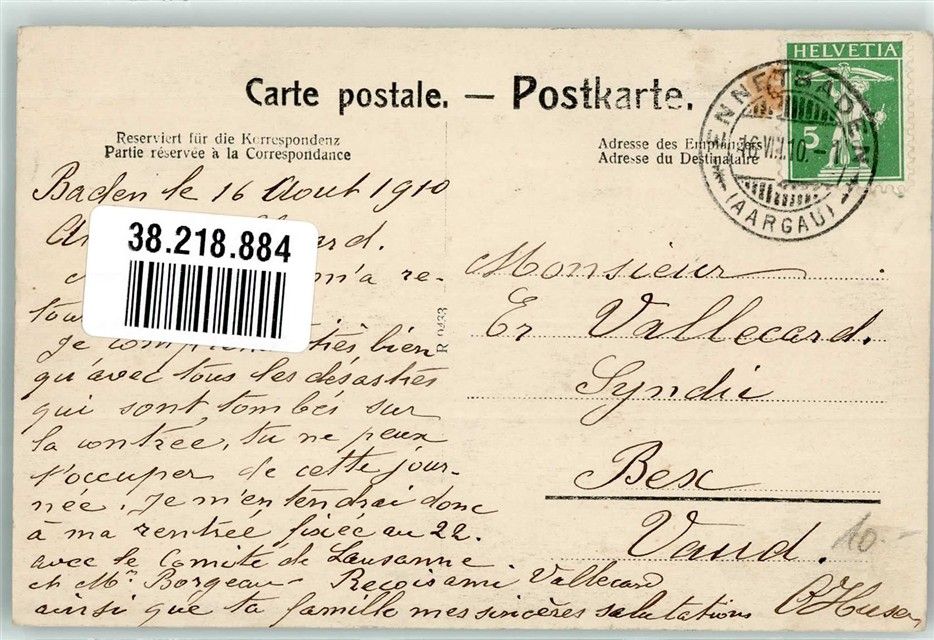 HELVETIA
5
Carte postale. — Postkarte.
ENNETBADEN
16.VIII.10.-1
(AARGAU)
Reserviert für die Korrespondenz
Partie réservée à la Correspondance
Adresse des Empfängers
Adresse du Destinataire
Baden le 16 Aout 1910
38.218.884
m'a re-
tou
Je très bien
qu'avec tous les désastres
qui sont tombés sur
la contrée, tu ne peux
t'occuper de cette jour-
née. Je m'entendrai donc
à ma rentrée fixée au 22.
avec le Comité de Lausanne
et Mr. Borgeau - Reçois ami Vallecard
ainsi que ta famille mes sincères salutations
R 0433
Monsieur
Er Vallecard.
Syndic
Bex
Vaud.
10.-